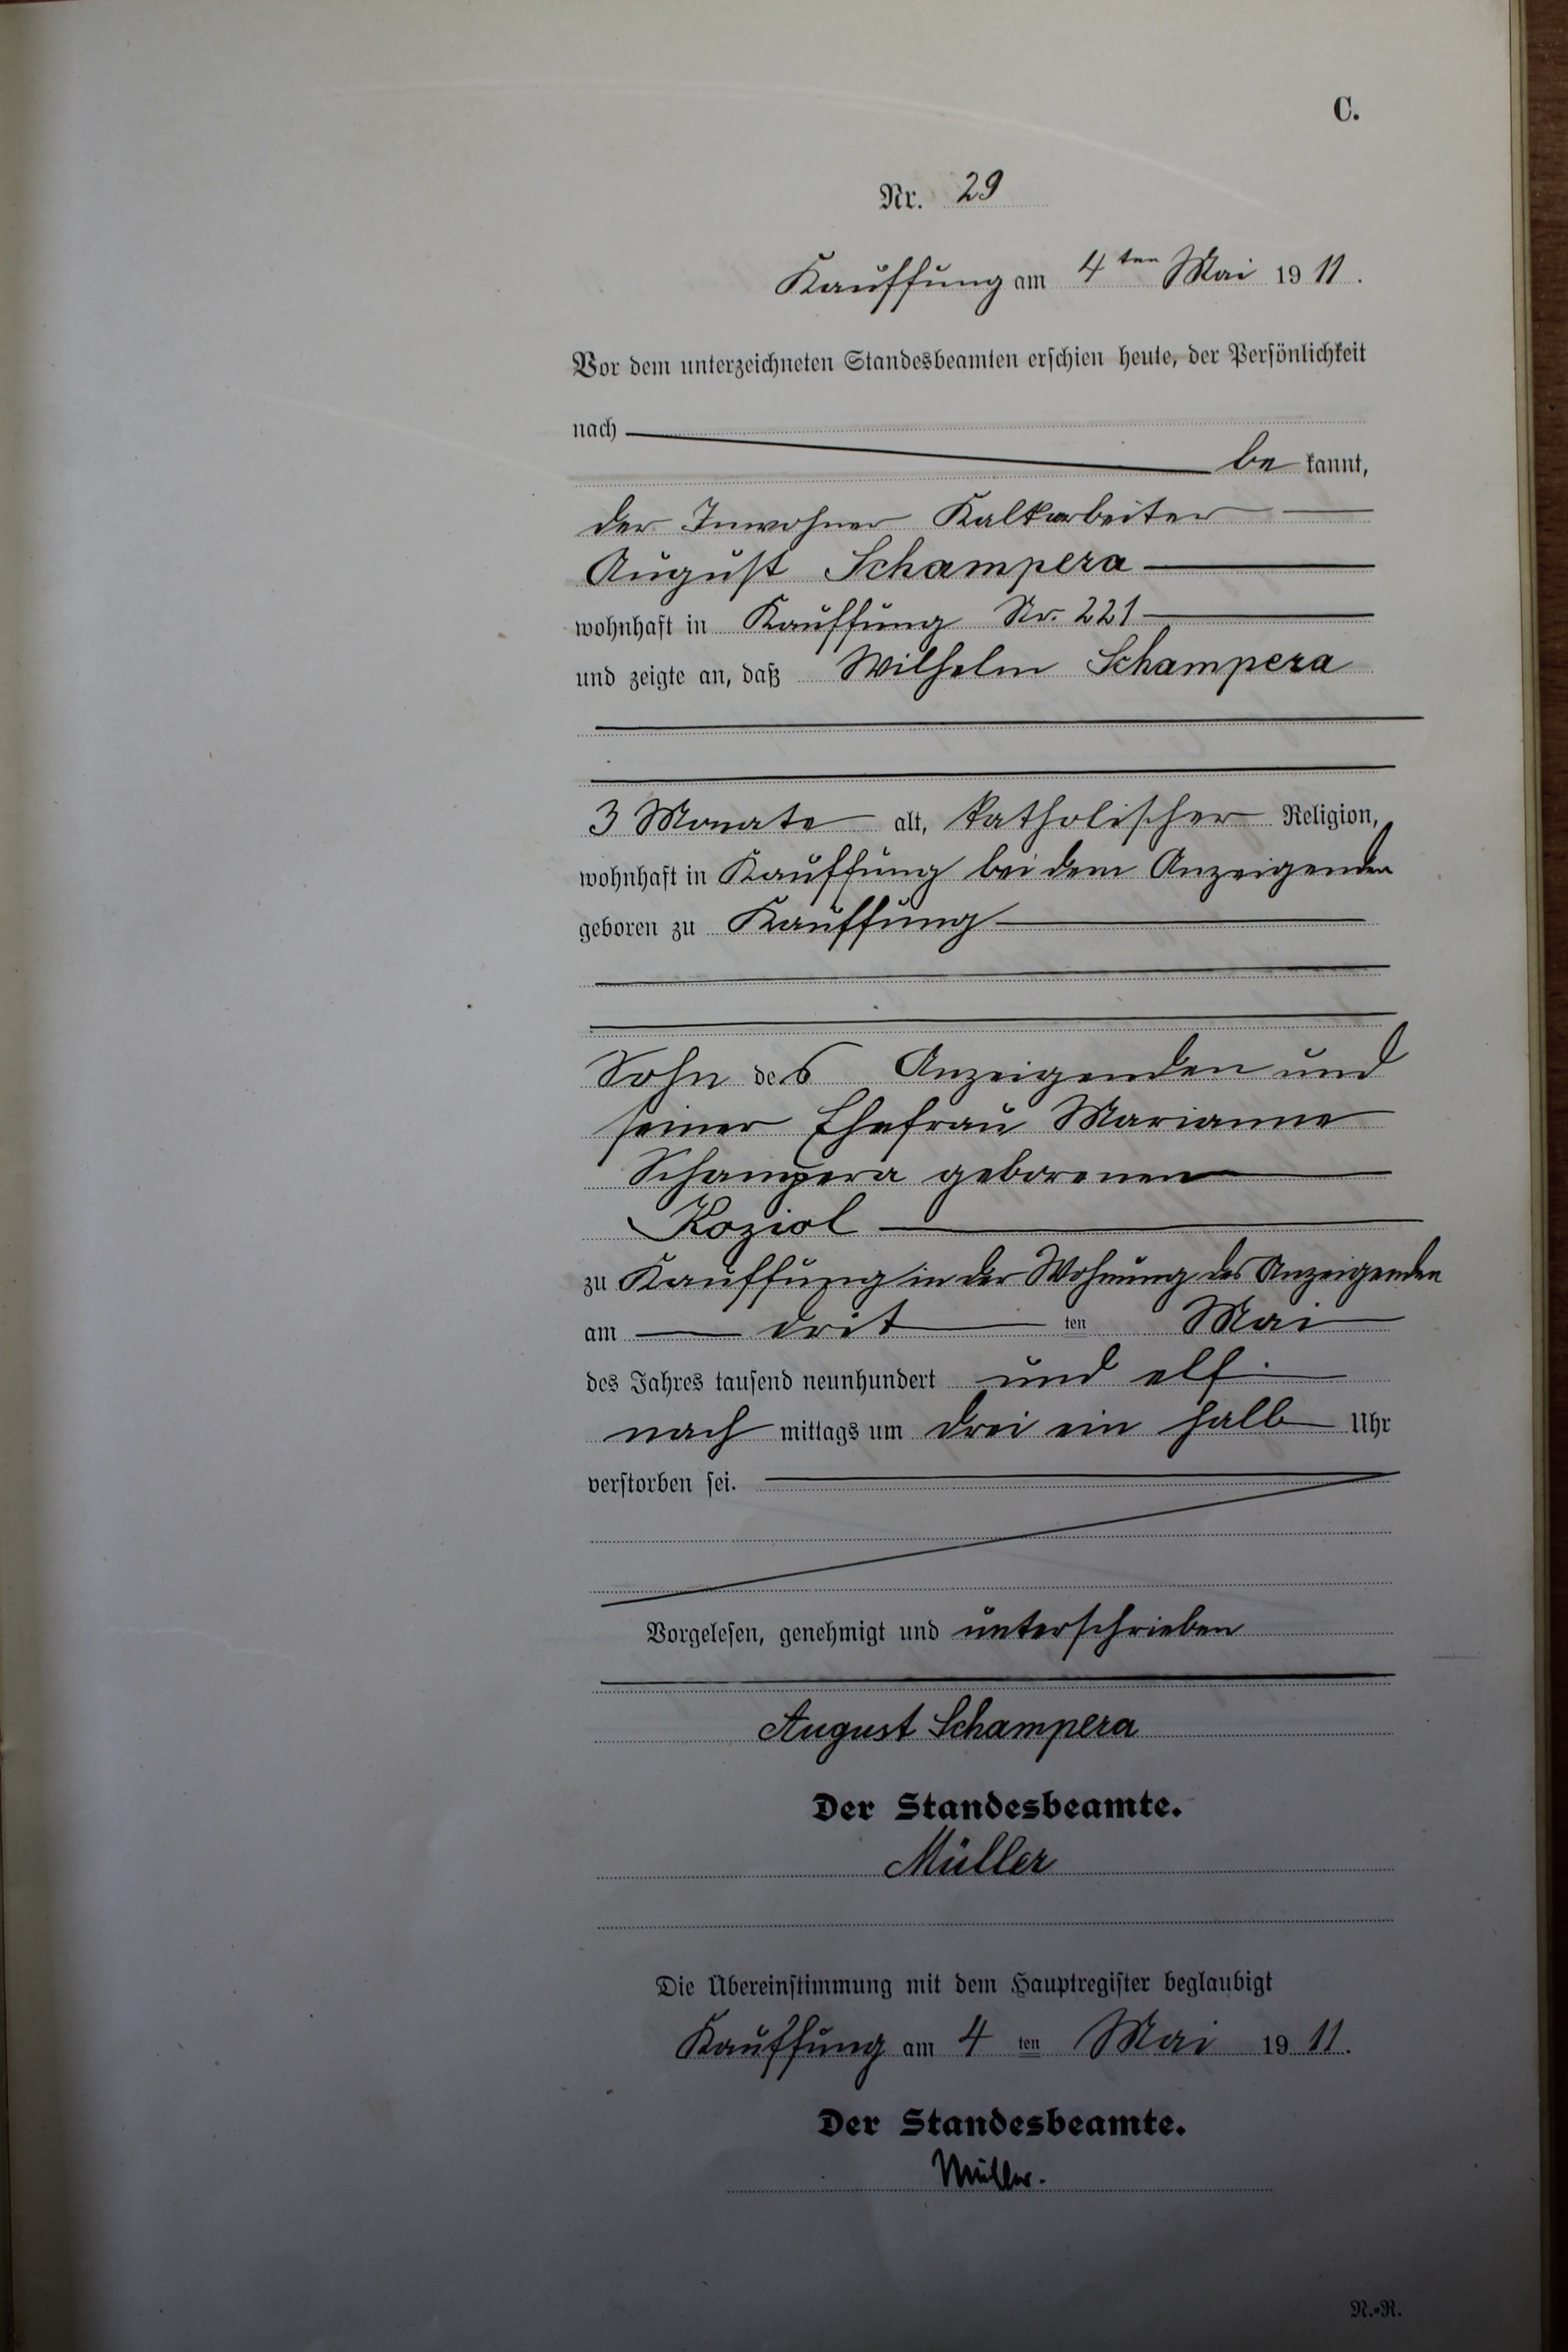 C.
Nr. 29
Kauffung am 4ten Mai 1911.
Vor dem unterzeichneten Standesbeamten erschien heute, der Persönlichkeit
nach
be kannt,
der Inwohner Kalkarbeiter
August Schampera
wohnhaft in Kauffung Nr. 221
und zeigte an, daß Wilhelm Schampera
3 Monate alt, katholischer Religion,
wohnhaft in Kauffung bei dem Anzeigenden
geboren zu Kauffung
Sohn des Anzeigenden und
seiner Ehefrau Marianne
Schampera geborenen
Koziol
zu Kauffung in der Wohnung des Anzeigenden
am drit ten Mai
des Jahres tausend neunhundert und elf
nach mittags um drei ein halb Uhr
verstorben sei.
Vorgelesen, genehmigt und unterschrieben
August Schampera
Der Standesbeamte.
Müller
Die Übereinstimmung mit dem Hauptregister beglaubigt
Kauffung am 4 ten Mai 1911.
Der Standesbeamte.
Müller.
N.-R.